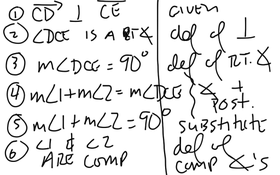 ① CD ⊥ CE GIVEN
② ∠DCE IS A RT ∡ def of ⊥
③ m∠DCE = 90° def of RT. ∡
④ m∠1 + m∠2 = m∠DCE ∡ + POST.
⑤ m∠1 + m∠2 = 90° SUBSTITUTE
⑥ ∠1 & ∠2 ARE COMP def of COMP ∡'S